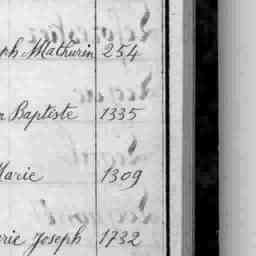 ph Mathurin 254
n Baptiste 1335
Marie 1309
rie Joseph 1732